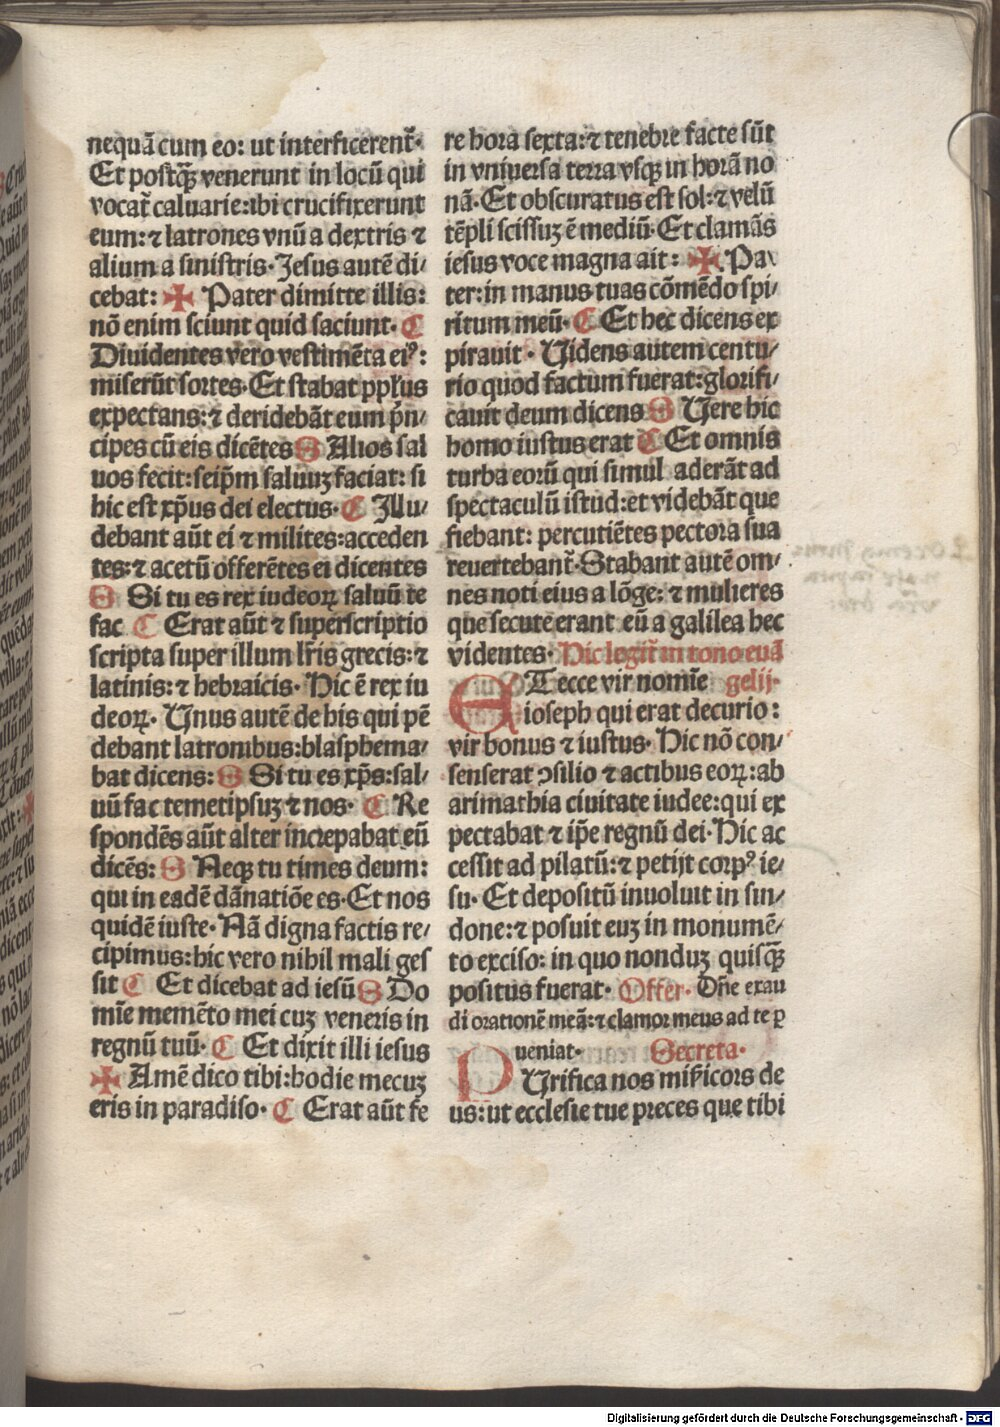 nequā cum eo: ut interficerent᷑·
Et postqꝫ̄ venerunt in locū qui
vocat᷑ caluarie: ibi crucifixerunt
eum: ⁊ latrones vnū a dextris ⁊
alium a sinistris· Jesus autē di⸗
cebat: ✠ Pater dimitte illis:
nō enim sciunt quid faciunt· C
Diuidentes vero vestimēta eiꝰ:
miserūt sortes· Et stabat pplūs
expectans: ⁊ deridebāt eum p̄n⸗
cipes cū eis dicētes S Alios sal
uos fecit: seip̄m saluuꝫ faciat: si
hic est xp̄us dei electus· C Illu⸗
debant aūt ei ⁊ milites: acceden
tes: ⁊ acetū offerētes ei dicentes
S Si tu es rex iudeoꝝ saluū te
fac C Erat aūt ⁊ superscriptio
scripta super illum lr̄is grecis: ⁊
latinis: ⁊ hebraicis· Hic ē rex iu
deoꝝ· Unus autē de his qui pē
debant latronibus: blasphema⸗
bat dicens: S Si tu es xp̄s: sal⸗
uū fac temetipsuꝫ ⁊ nos· C Re
spondēs aūt alter increpabat eū
dicēs: S Neqꝫ tu times deum:
qui in eadē dānatiōe es· Et nos
quidē iuste· Nā digna factis re⸗
cipimus: hic vero nihil mali ges
sit C Et dicebat ad iesū S Do
mīe memēto mei cuꝫ veneris in
regnū tuū· C Et dixit illi iesus
✠ Amē dico tibi: hodie mecuꝫ
eris in paradiso· C Erat aūt fe
re hora sexta: ⁊ tenebre facte sūt
in vniuersa terra vsqꝫ in horā no
nā· Et obscuratus est sol: ⁊ velū
tēpli scissuꝫ ē mediū· Et clamās
iesus voce magna ait: ✠ Pa⸗
ter: in manus tuas cōmēdo spi⸗
ritum meū· C Et hec dicens ex
pirauit· Uidens autem centu⸗
rio quod factum fuerat: glorifi⸗
cauit deum dicens S Uere hic
homo iustus erat C Et omnis
turba eorū qui simul aderāt ad
spectaculū istud: et videbāt que
fiebant: percutiētes pectora sua
reuertebant᷑· Stabant autē om⸗
nes noti eius a lōge: ⁊ mulieres
que secute erant eū a galilea hec
videntes· Hic legit᷑ in tono euā
ET ecce vir nomīe gelij·
ioseph qui erat decurio:
vir bonus ⁊ iustus· Hic nō con⸗
senserat ↄsilio ⁊ actibus eoꝝ: ab
arimathia ciuitate iudee: qui ex
pectabat ⁊ ip̄e regnū dei· Hic ac
cessit ad pilatū: ⁊ petijt corpꝰ ie⸗
su· Et depositū inuoluit in sin⸗
done: ⁊ posuit euꝫ in monumē⸗
to exciso: in quo nonduꝫ quisqꝫ̄
positus fuerat· Offer· Dn̄e exau
di orationē meā: ⁊ clamor meus ad te ꝑ
ueniat· Secreta·
PUrifica nos mi͞sicors de
us: ut ecclesie tue preces que tibi
Digitalisierung gefördert durch die Deutsche Forschungsgemeinschaft - DFG